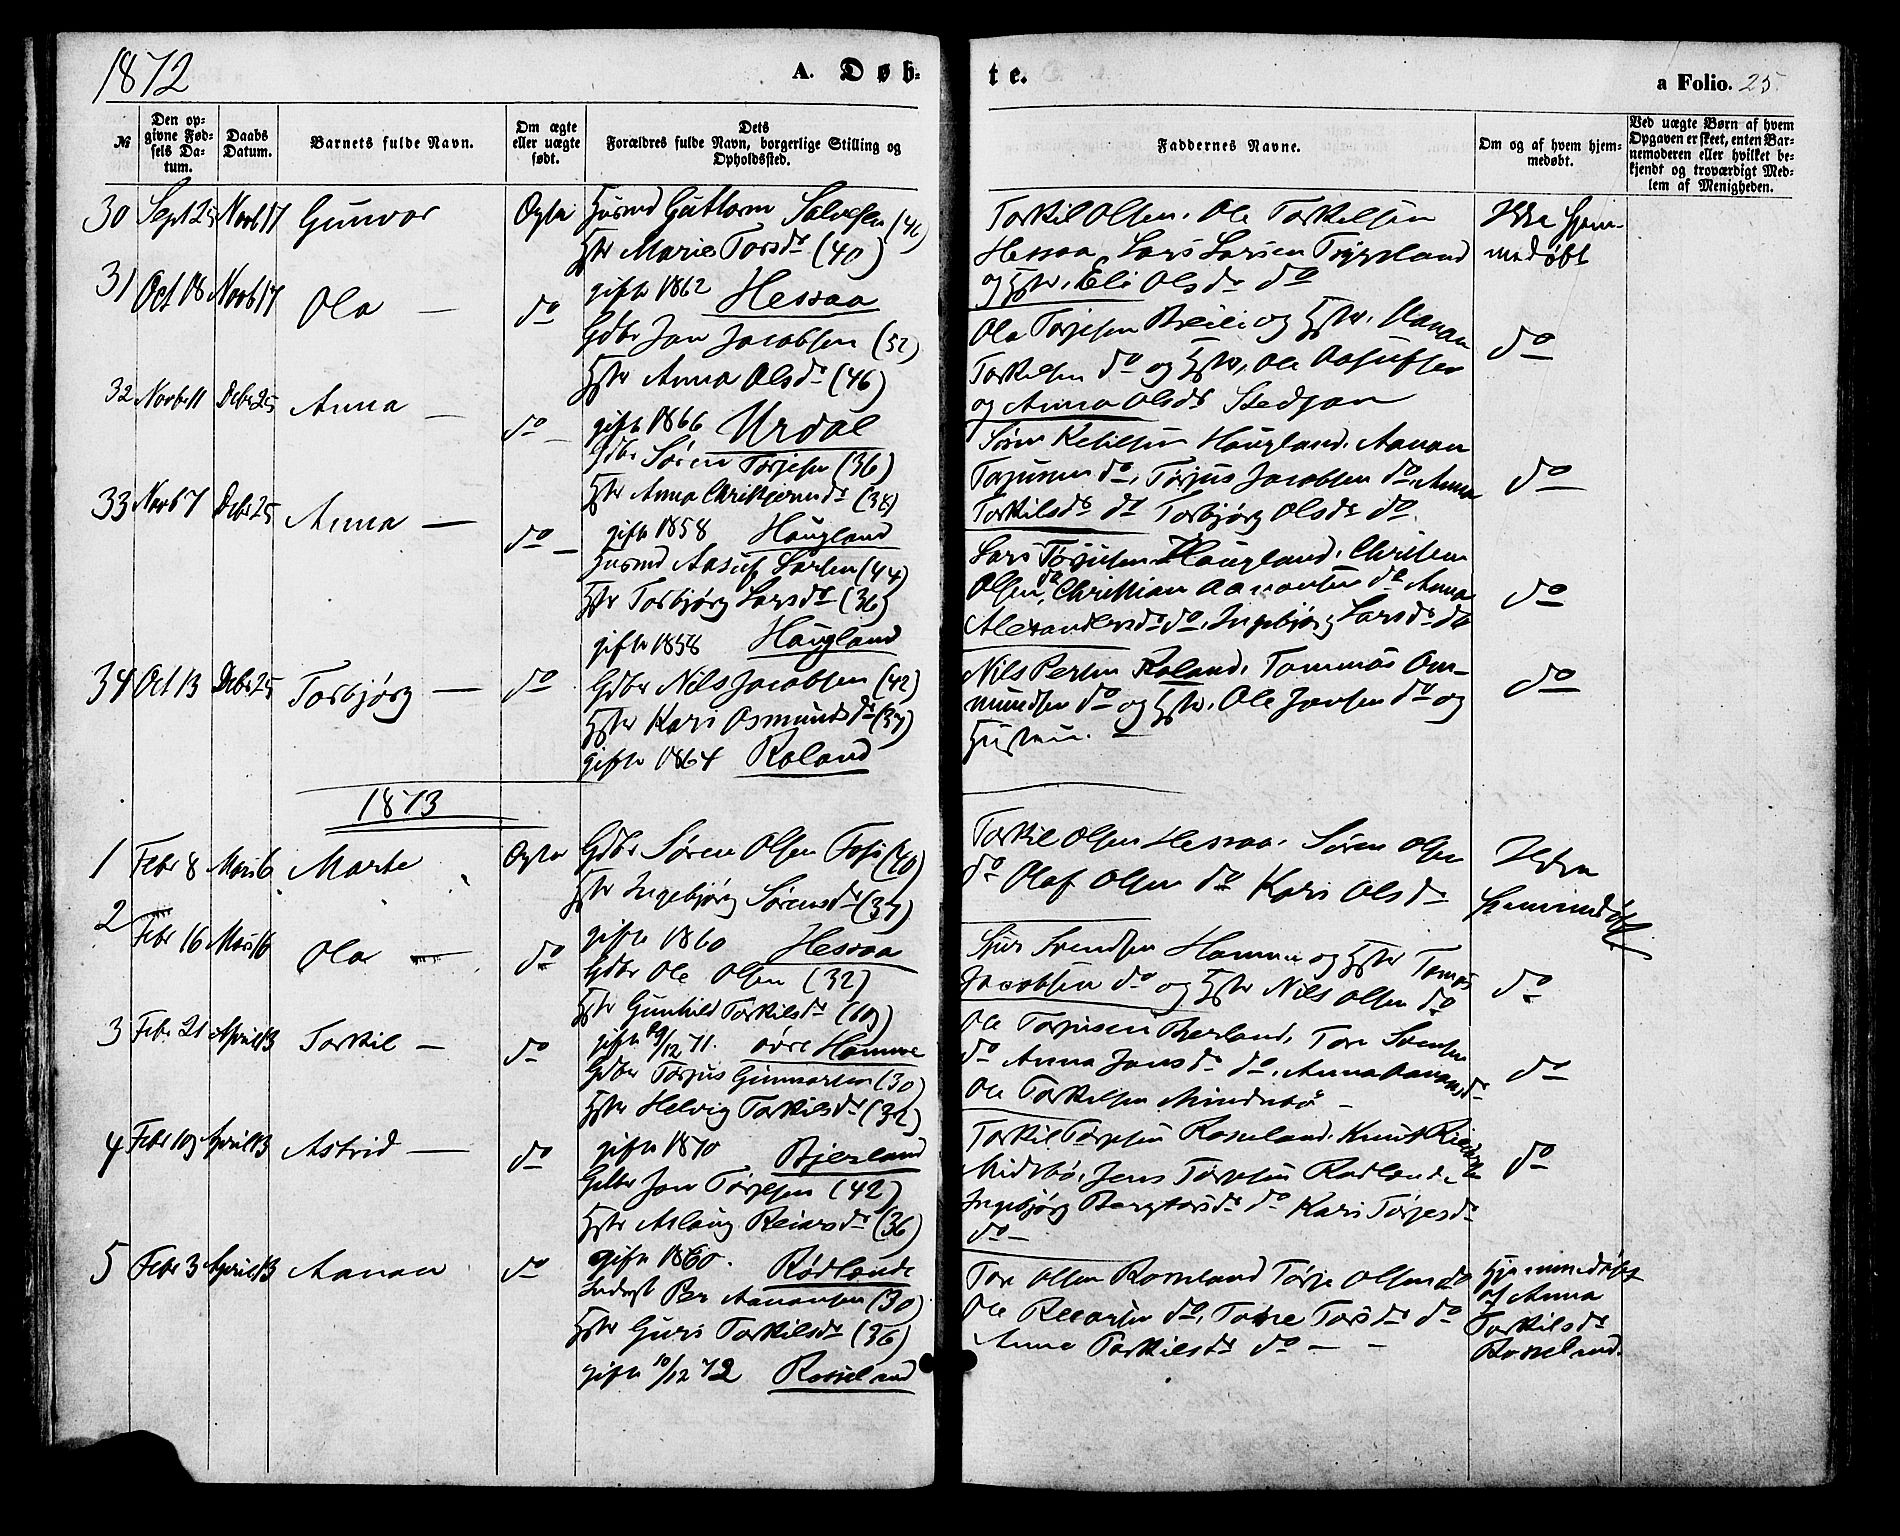 1872
A. Døb-
te.
a Folio. 25.
№
Den op-
givne Fød-
sels Da-
tum.
Daabs
Datum.
Barnets fulde Navn.
Om ægte
eller uægte
født.
Dets
Forældres fulde Navn, borgerlige Stilling og
Opholdssted.
Faddernes Navne.
Om og af hvem hjem-
medøbt.
Ved uægte Børn af hvem
Opgaven er skeet, enten Bar-
nemoderen eller hvilket be-
kjendt og troværdigt Med-
lem af Menigheden.
30 Sept 25 Novb 17 Gunvor Ægte
Husmd Guttorm Salvesen (46)
Hstr Marie Torsdr (40)
gifte 1862 Hessaa
Torkil Olsen, Ole Torkelsen
Hessaa, Lars Larsen
og Hstr, Eli Olsdr do
Ikke hjem-
medøbt
31 Oct 18 Novb 17 Ola — do
Gdbr Jon Jacobsen (52)
Hstr Anna Olsdr (46)
gifte 1866 Urdal
Ole Torjesen og Hstr, Aanan
Torkelsen do og Hstr, Ole Aasulfsen
og Anna Olsdr
do
32 Novb 11 Debr 25 Anna — do
Gdbr Søren Torjesen (36)
Hstr Anna Christjernsdr (38)
gifte 1858 Haugland
Søren Ketilsen Haugland, Aanan
Torjusen do, Torjus Jacobsen do, Anna
Torkilsdr do Torbjørg Olsdr do
do
33 Novb 7 Debr 25 Anna — do
Husmd Aasulf Larsen (44)
Hstr Torbjørg Larsdr (36)
gifte 1858 Haugland
Lars Torjusen Haugland, Christen
Olsen do, Christian Aanansen do Anna
Alexandersdr do, Ingebjørg Larsdr do
do
34 Oct 13 Debr 25 Torbjørg — do
Gdbr Nils Jacobsen (42)
Hstr Kari Osmundsdr (37)
gifte 1864 Roland
Nils Persen Roland, Tommas Om-
mundsen do og Hstr, Ole Jansen do og
Hustru.
do
1873
1 Febr 8 Mars 16 Marte Ægte
Gdbr Søren Olsen (40)
Hstr Ingebjørg Sørensdr (37)
gifte 1860 Hessaa
Torkil Olsen Hessaa, Søren Olsen
do Olaf Olsen do Kari Olsdr
Ikke
hjemmedøbt
2 Febr 16 Mars 16 Ola — do
Gdbr Ole Olsen (32)
Hstr Gunhild Torkilsdr (19)
gifte 29/12 71. øvre Homme
Svendsen Homme og Hstr
Jacobsen do og Hstr Nils Olsen do
do
3 Febr 21 April 13 Torkil — do
Gdbr Torjus Gunnarsen (30)
Hstr Helvig Torkilsdr (32)
gifte 1870 Bjerland
Ole Torjusen Bjerland, Tore
do Anna Jonsdr do, Anna Aanansdr
Ole Torkelsen
do
4 Febr 19 April 13 Astrid — do
Gdbr Jon Torjesen (42)
Hstr Aslaug Reiarsdr (36)
gifte 1860. Rødlande
Torkil Torjesen Roseland, Knut
Midtbø, Jens Torjesen Rødlande
Ingebjørg Bergtorsdr do Kari Torjesdr
do
do
5 Febr 3 April 13 Aanan do
Inderst Per Aanansen (30)
Hstr Guri Torkilsdr (36)
gifte 10/12 72 Rosseland
Tore Olsen Rosseland Torje Olsen do
Ole do, Tone Torsdr do
Anne Torkilsdr do
Hjemmedøbt
af Anna
Torkilsdr
Rosseland.